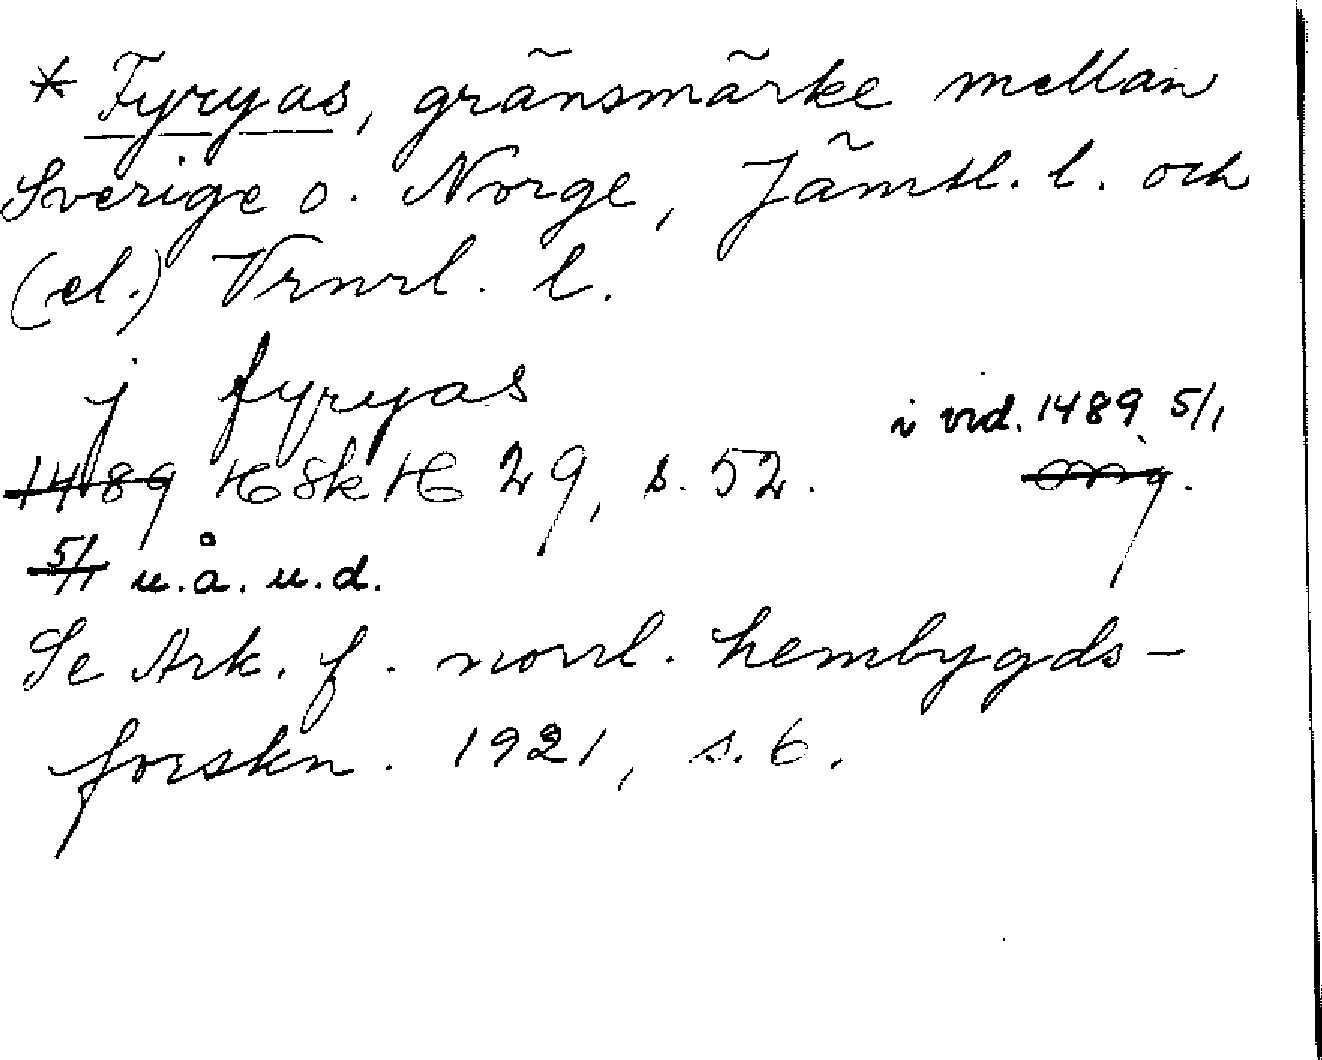 * Fyryas, gränsmärke mellan
Sverige o. Norge, Jämtl. l. och
(el.) Vrmrl. l.
j fyryas
i vid. 1489 5/1
1489 HSkH 29, s. 52. orig.
5/1 u.å. u.d.
Se Ark. f. norrl. hembygds-
forskn. 1921, s. 6.